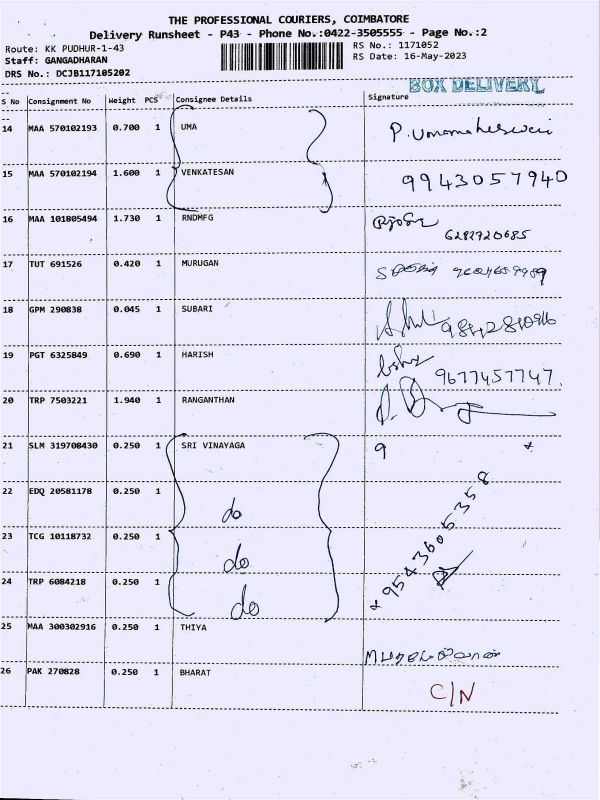 THE PROFESSIONAL COURIERS, COIMBATORE
Delivery Runsheet - P43 - Phone No.:0422-3505555 - Page No.:2
Route: KK PUDHUR-1-43
RS No.: 1171052
Staff: GANGADHARAN
RS Date: 16-May-2023
DRS No.: DCJB117105202
BOX DELIVERY
S No Consignment No Weight PCS Consignee Details Signature
14 MAA 570102193 0.700 1 UMA P. Umamaheswari
15 MAA 570102194 1.600 1 VENKATESAN 9943057940
16 MAA 101805494 1.730 1 RNDMFG
6282720685
17 TUT 691526 0.420 1 MURUGAN
18 GPM 290838 0.045 1 SUBARI
19 PGT 6325849 0.690 1 HARISH
9677457747.
20 TRP 7503221 1.940 1 RANGANTHAN
21 SLM 319708430 0.250 1 SRI VINAYAGA 9
22 EDQ 20581178 0.250 1 do
23 TCG 10118732 0.250 1 do
9543605358
24 TRP 6084218 0.250 1 do
25 MAA 300302916 0.250 1 THIYA
26 PAK 270828 0.250 1 BHARAT C/N